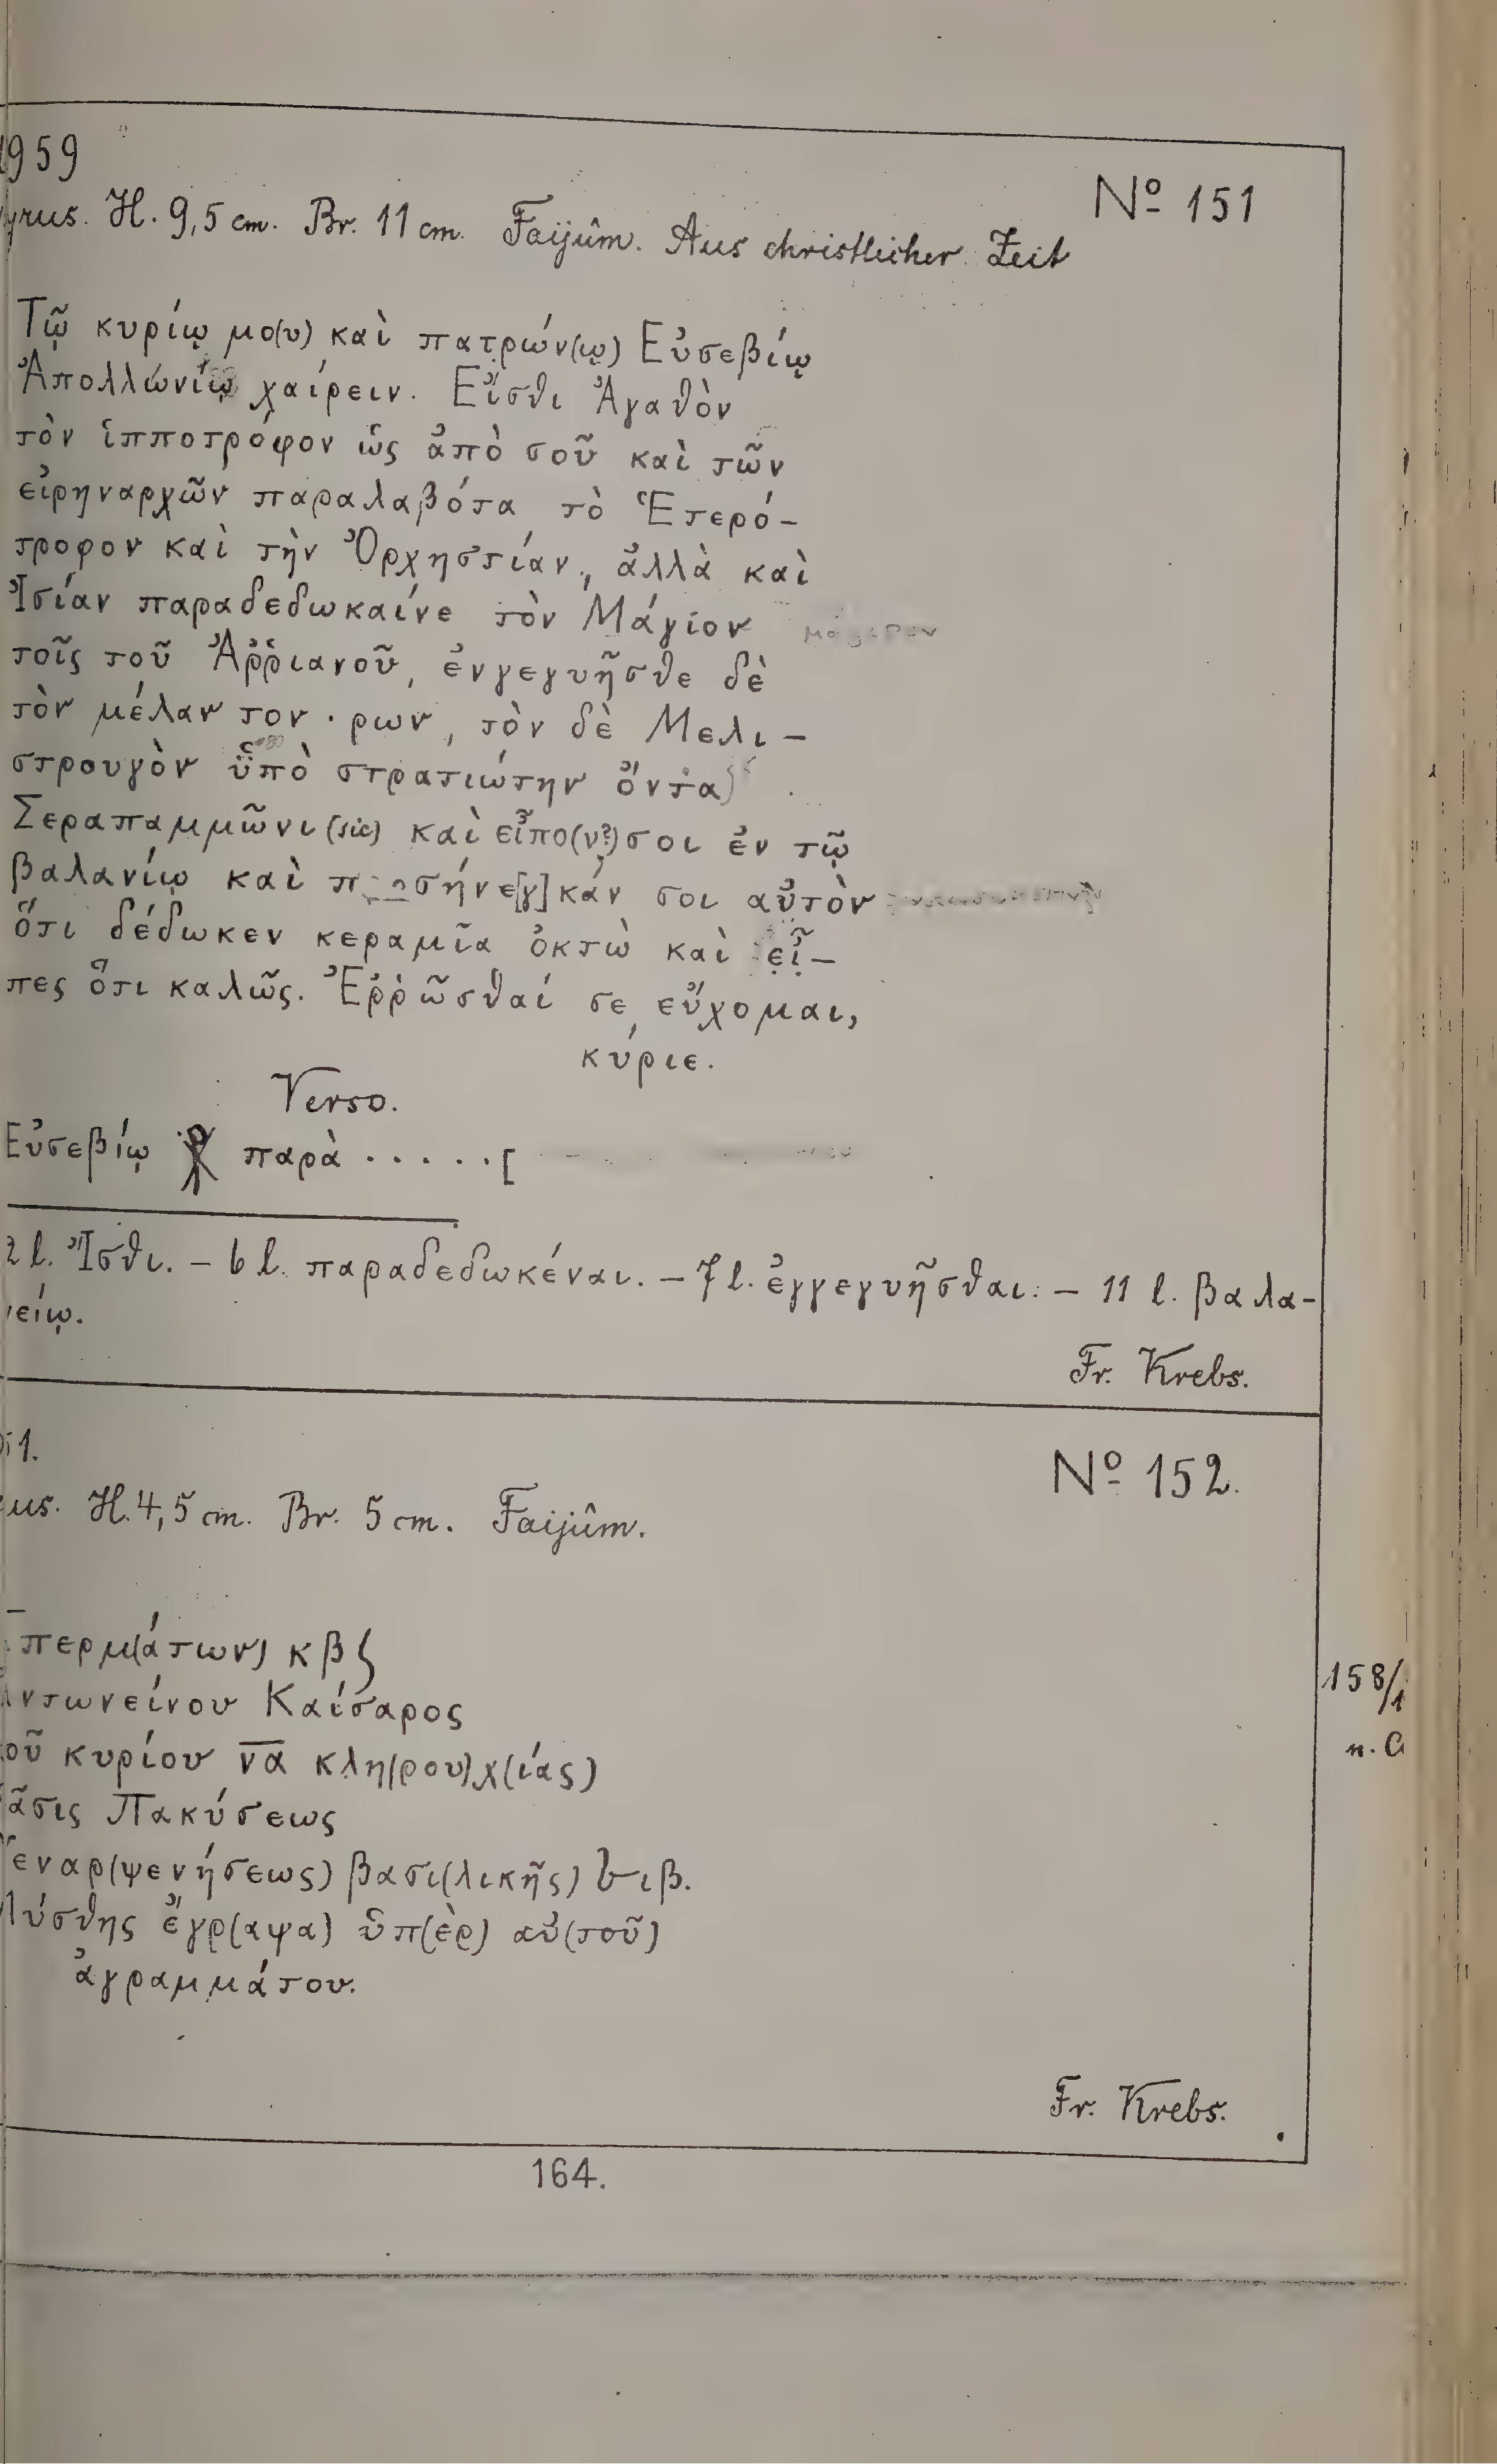 1959
No 151
yrus. H. 9,5 cm. Br. 11 cm. Faijûm. Aus christlicher Zeit
Τῷ κυρίῳ μο(υ) καὶ πατρών(ῳ) Εὐσεβίῳ
Ἀπολλώνιῳ χαίρειν. Εἴσθι Ἀγαθὸν
τὸν ἱπποτρόφον ὡς ἀπὸ σοῦ καὶ τῶν
εἰρηναρχῶν παραλαβότα τὸ Ἑτερό-
τροφον καὶ τὴν Ὀρχηστίαν, ἀλλὰ καὶ
Ἰσίαν παραδεδωκαίνε τὸν Μάγιον
τοῖς τοῦ Ἀῤῥιανοῦ, ἐνγεγυῆσθε δὲ
τὸν μέλαν τον . ρων, τὸν δὲ Μελι-
στρουγὸν ὑ̈πὸ στρατιώτην ὄντα
Σεραπαμμῶνι (sic) καὶ εἶπο(ν?) σοι ἐν τῷ
βαλανίῳ καὶ προσήνε[γ]κάν σοι αὐτὸν
ὅτι δέδωκεν κεραμῖα ὀκτὼ καὶ εἶ-
πες ὅτι καλῶς. Ἐῤῥῶσθαί σε εὔχομαι,
κύριε.
Verso.
Εὐσεβίῳ ⳩ παρὰ . . . . . . [
2 l. Ἴσθι. – 6 l. παραδεδωκέναι. – 7 l. ἐγγεγυῆσθαι. – 11 l. βαλα-
νείῳ.
Fr. Krebs.
51.
No 152.
us. H. 4,5 cm. Br. 5 cm. Faijûm.
περμ(άτων) κβ ʃ
Ἀντωνείνου Καίσαρος
τοῦ κυρίου ν̅α̅ κλη(ρου)χ(ίας)
ᾶσις Πακύσεως
εναρ(ψενήσεως) βασι(λικῆς) ιβ.
λύσθης ἔγρ(αψα) ὑπ(ὲρ) αὐ(τοῦ)
ἀγραμμάτου.
158/
n. C
Fr. Krebs.
164.